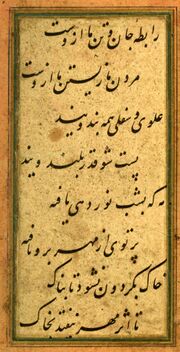 رابطه جان و تن ما ازوست
مردن ما زیستن ما ازوست
علوی و سفلی همه بند ویند
پست شو قدر بلند ویند
مه که بشب نور دهی یافته
پرتوی از مهر برو تافته
خاک بگردون نشود تابناک
تا اثر مهر نیفتد بخاک